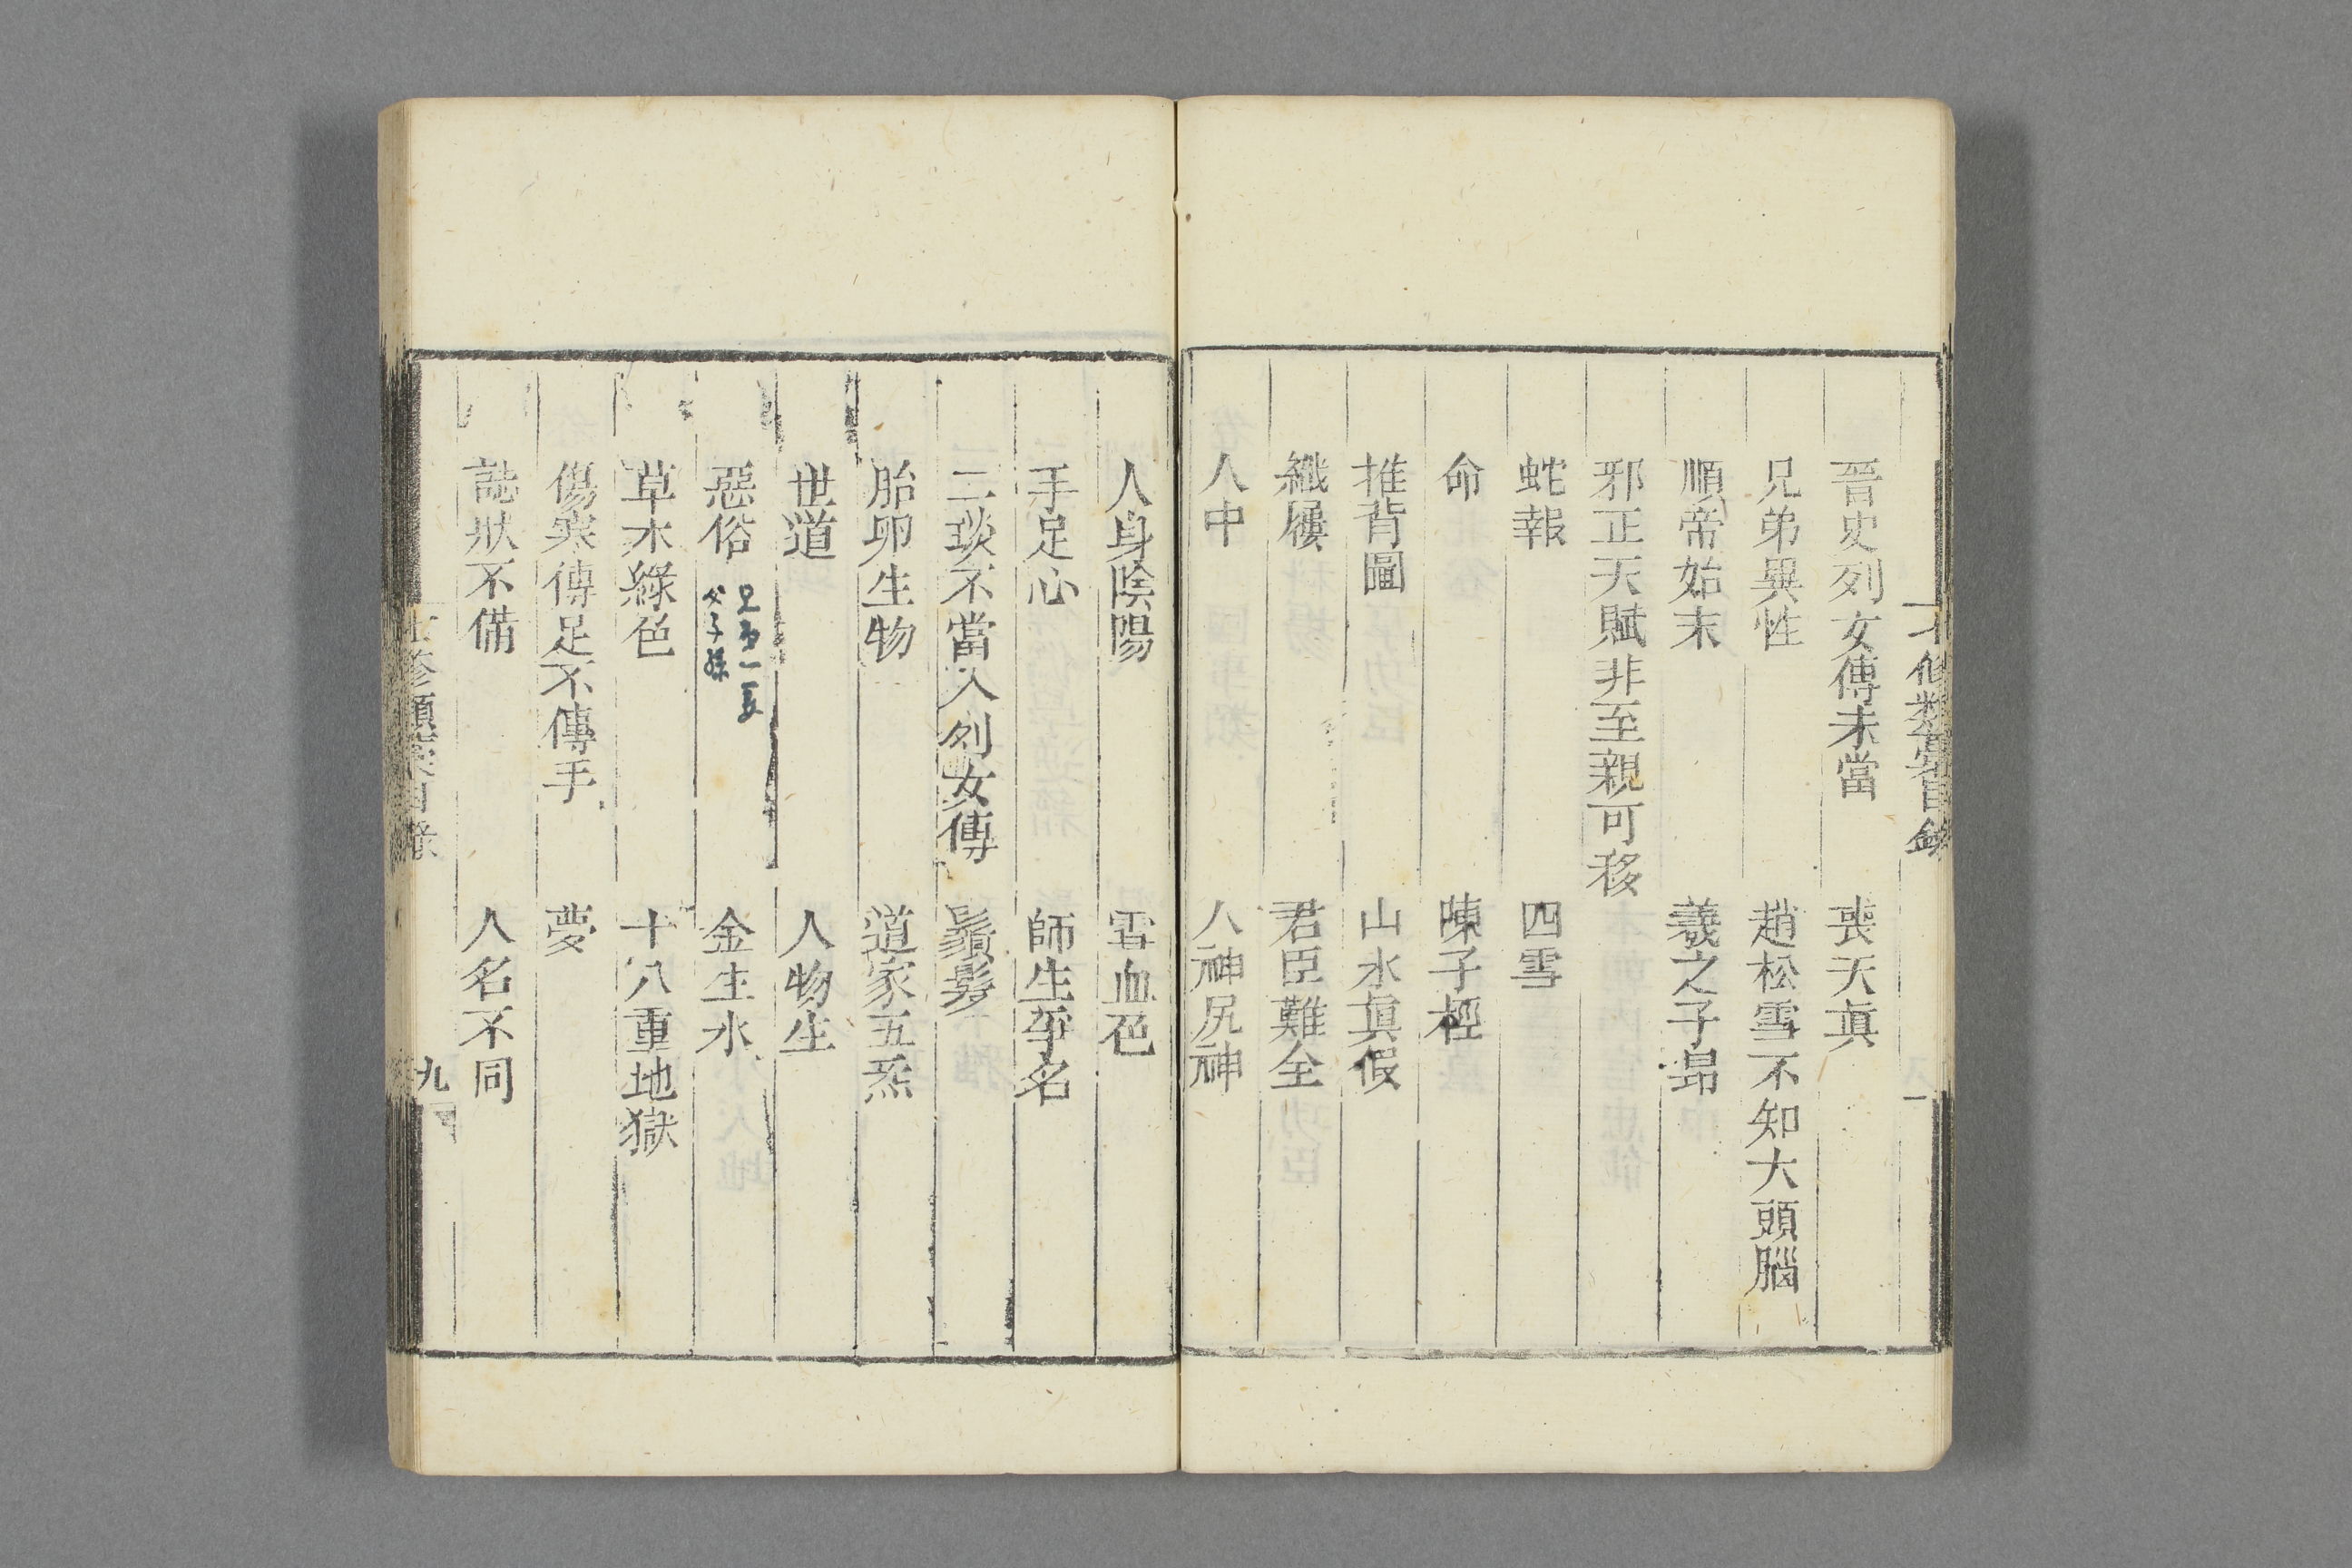 七修類藁目錄
晉史列女傳未當　喪天真
兄弟異性　趙松雪不知大頭腦
順帝始末　羲之子昻
邪正天賦非至親可移
蛇報　四雪
命　陳子桱
推背圖　山水眞假
織屨　君臣難全
人中　八神尻神
人身陰陽　雪血色
手足心　師生孕名
二琰不當入列女傳　鬚髮
胎卵生物　道家五炁
世道　人物生
惡俗　金生水
父子孫
草木綠色　十八重地獄
傷寒傳足不傳手　夢
誌狀不備　人名不同
七修類藁目錄　九